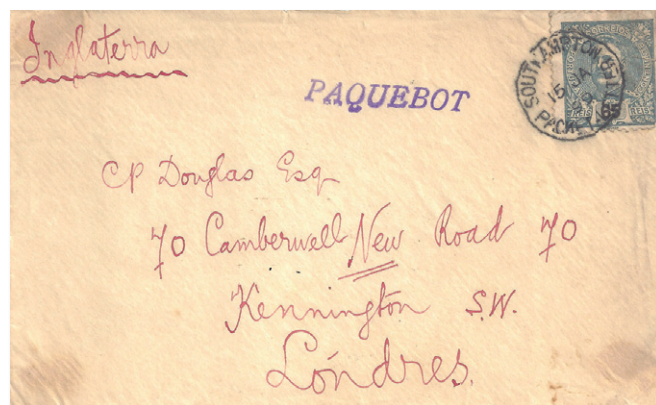 Inglaterra
PAQUEBOT
SOUTHAMPTON
15 JA
PACKET
CORREIO
REIS
65
REIS
CP Douglas Esq
70 Camberwell New Road 70
Kennington S.W.
Lóndres.